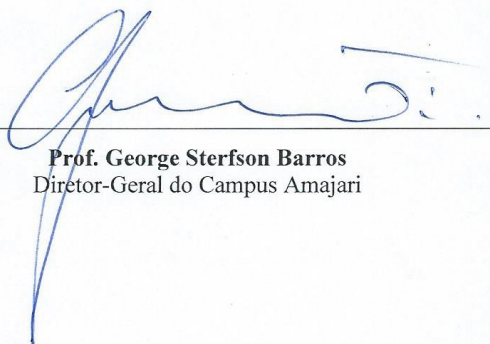 Prof. George Sterfson Barros
Diretor-Geral do Campus Amajari